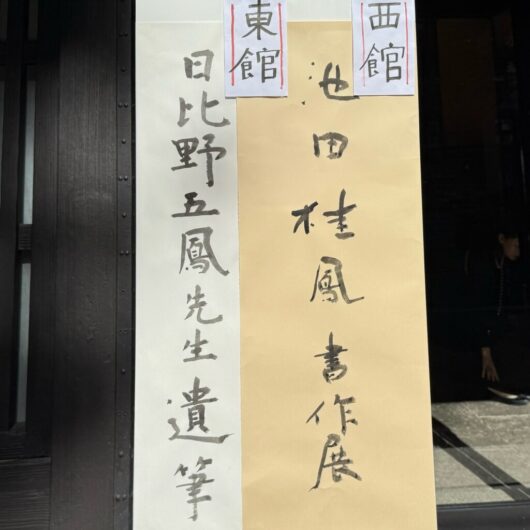 西館
池田桂鳳書作展
東館
日比野五鳳先生遺筆